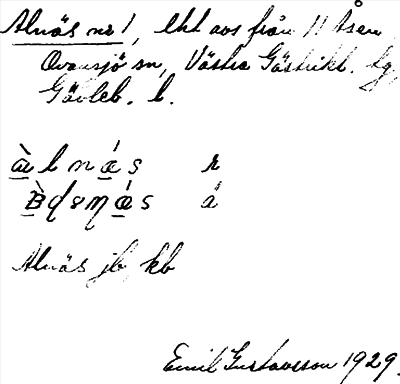 Alnäs nr 1, lht avs från 11 Åsen,
Ovansjö sn, Västra Gästrikl. tg,
Gävleb. l.
àlnás r
á
Alnäs jb, kb
Emil Gustavsson 1929.